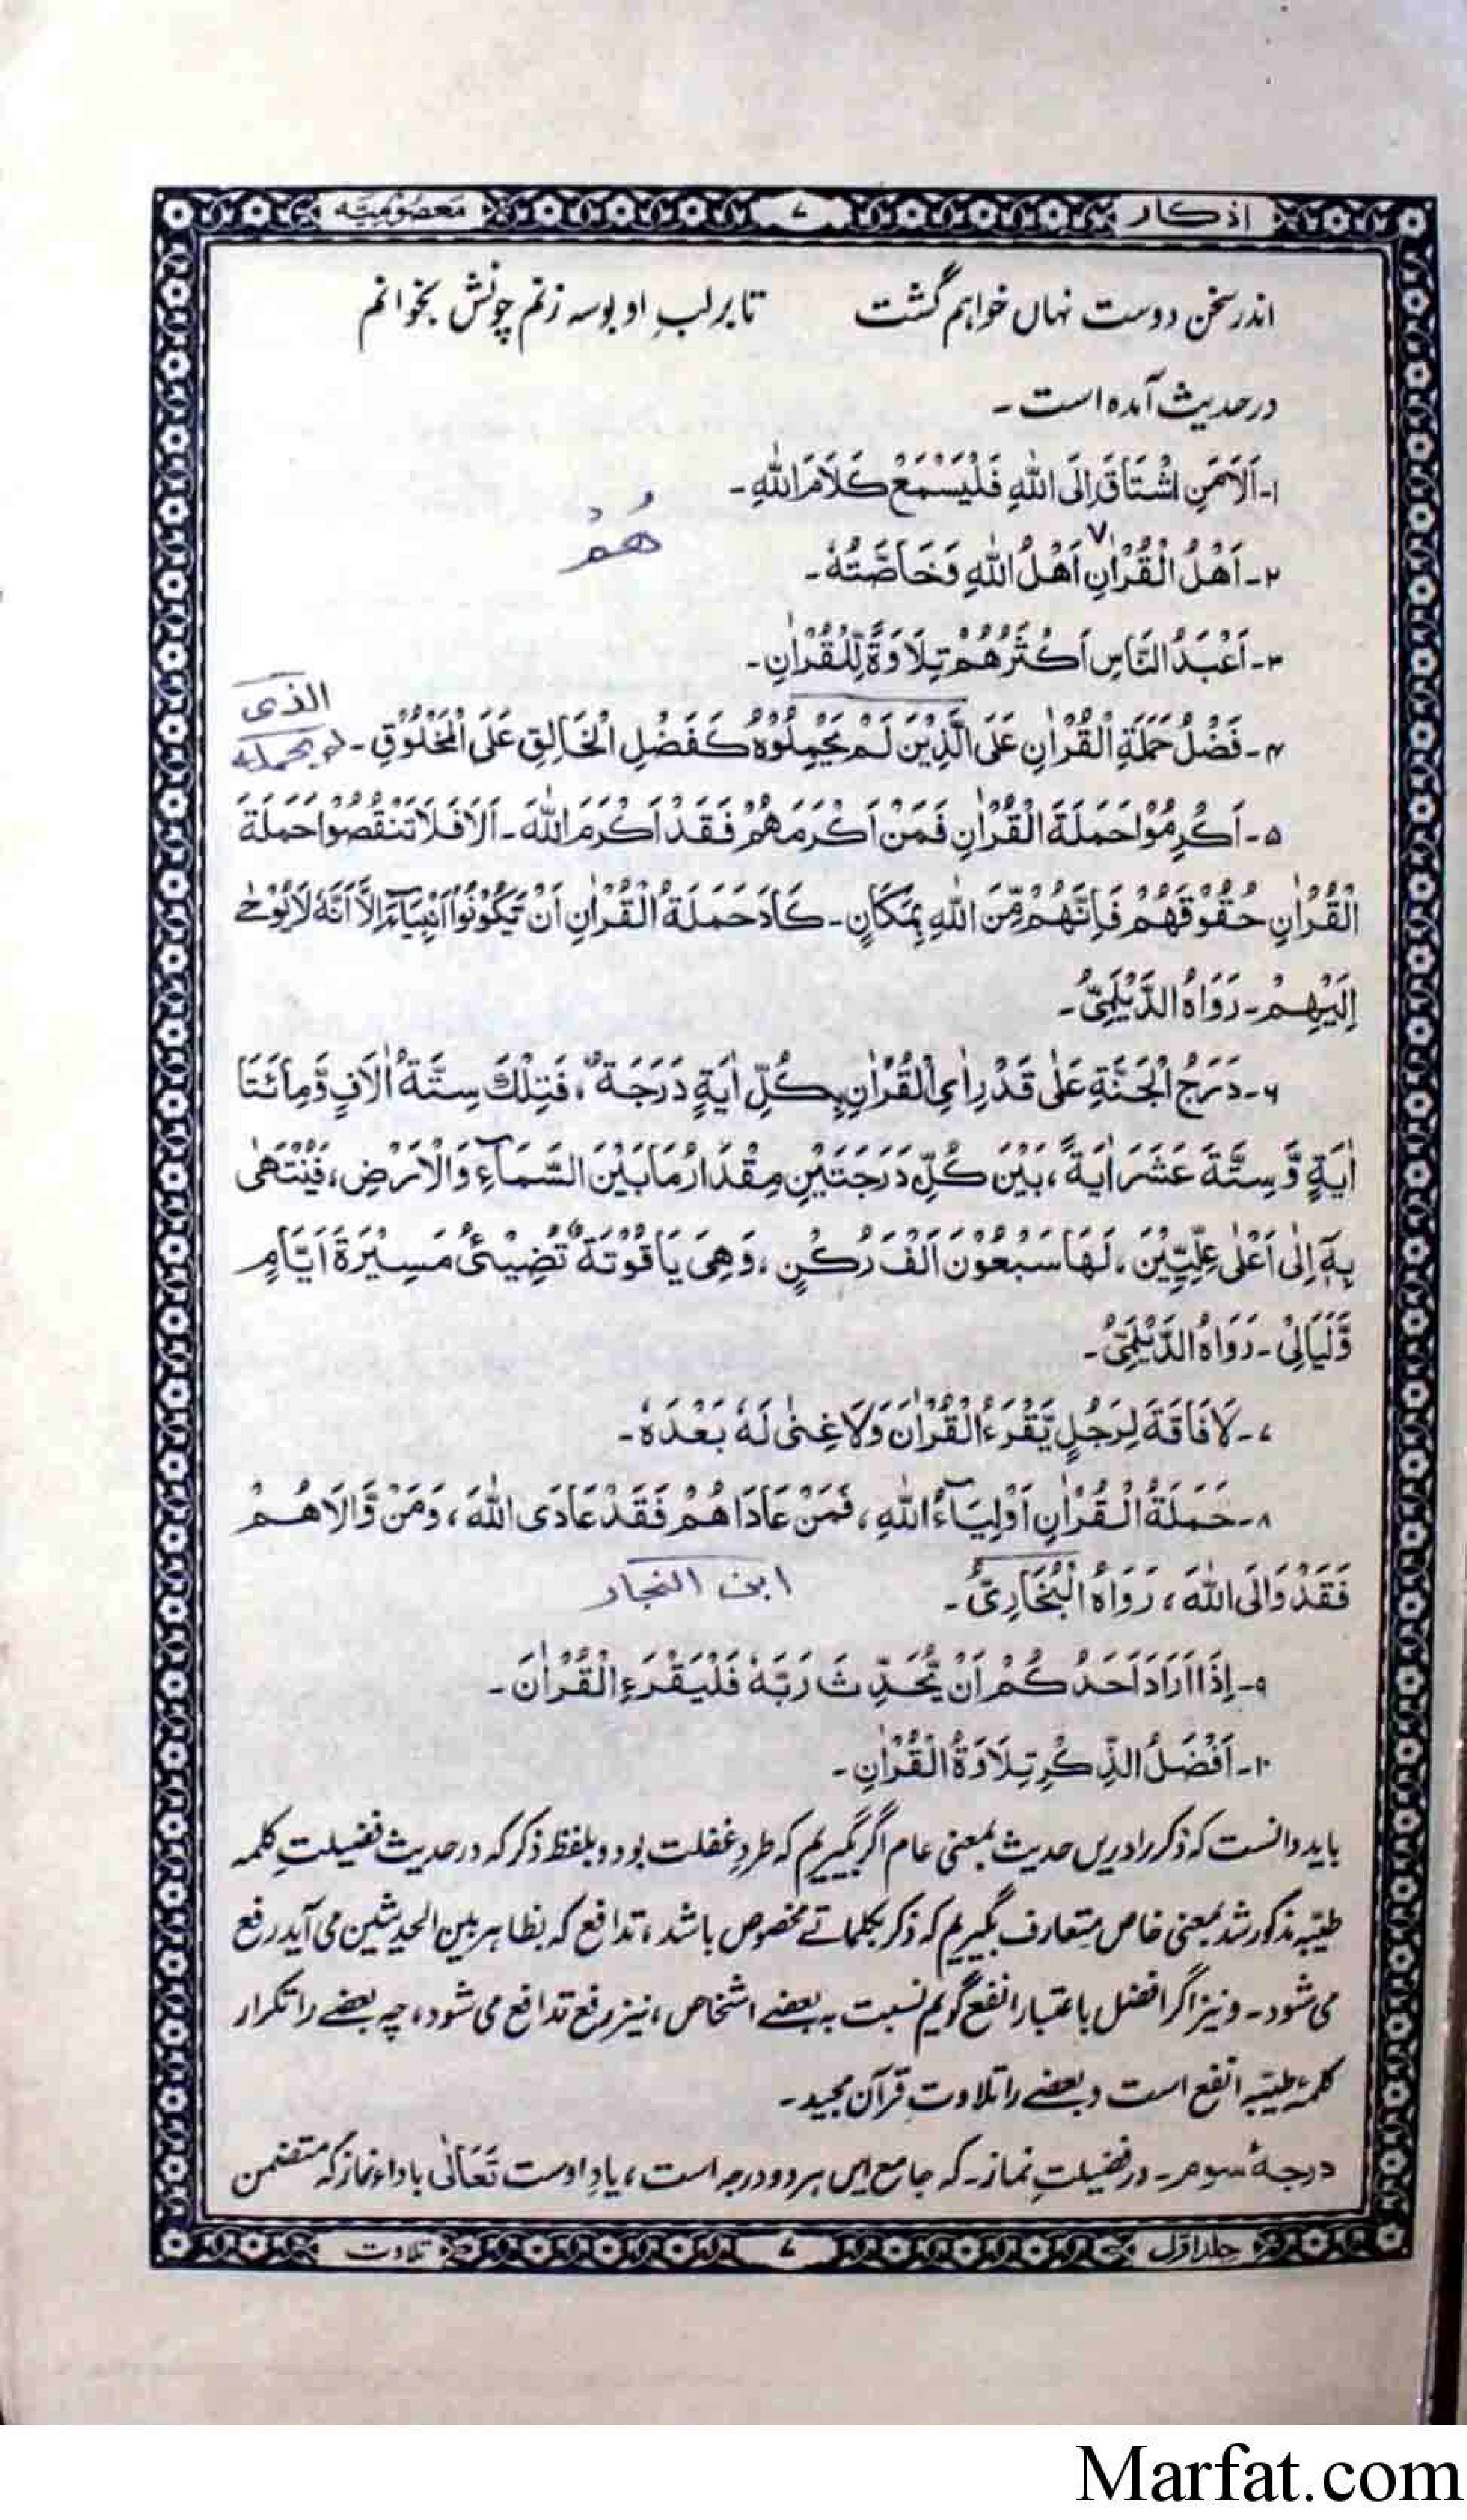 اذکار ۷ معصومیّه
اندر سخن دوست نہاں خواہم گشت تا بر لبِ او بوسہ زنم چونش بخوانم
در حدیث آمدہ است ۔
۱۔ اَلَا مَنِ اشْتَاقَ اِلَی اللّٰہِ فَلْیَسْمَعْ کَلَامَ اللّٰہِ ۔
هُمْ
۲۔ اَهْلُ الْقُرْاٰنِ ۷ اَهْلُ اللّٰہِ وَخَاصَّتُهٗ ۔
۳۔ اَعْبَدُ النَّاسِ اَکْثَرُهُمْ تِلَاوَةً لِّلْقُرْاٰنِ ۔
الذی
۴۔ فَضْلُ حَمَلَةِ الْقُرْاٰنِ عَلَی الَّذِیْنَ لَمْ یَحْمِلُوْهُ کَفَضْلِ الْخَالِقِ عَلَی الْمَخْلُوْقِ ۔ لم یحمله
۵۔ اَکْرِمُوْا حَمَلَةَ الْقُرْاٰنِ فَمَنْ اَکْرَمَهُمْ فَقَدْ اَکْرَمَ اللّٰہَ ۔ اَلَا فَلَا تَنْقُصُوْا حَمَلَةَ
الْقُرْاٰنِ حُقُوْقَهُمْ فَاِنَّهُمْ مِّنَ اللّٰہِ بِمَکَانٍ ۔ کَادَ حَمَلَةُ الْقُرْاٰنِ اَنْ یَّکُوْنُوْا اَنْبِیَآءَ اِلَّا اَنَّهٗ لَا یُوْحٰی
اِلَیْهِمْ ۔ رَوَاهُ الدَّیْلَمِیُّ ۔
۶۔ دَرَجُ الْجَنَّةِ عَلٰی قَدْرِ اٰیِ الْقُرْاٰنِ بِکُلِّ اٰیَةٍ دَرَجَةٌ ، فَتِلْکَ سِتَّةُ اٰلَافٍ وَّمِائَتَا
اٰیَةٍ وَّسِتَّةَ عَشَرَ اٰیَةً ، بَیْنَ کُلِّ دَرَجَتَیْنِ مِقْدَارُ مَا بَیْنَ السَّمَآءِ وَالْاَرْضِ ، فَیُنْتَهٰی
بِهٖٓ اِلٰی اَعْلٰی عِلِّیِّیْنَ ، لَهَا سَبْعُوْنَ اَلْفَ رُکْنٍ ، وَهِیَ یَاقُوْتَةٌ تُضِیْئُ مَسِیْرَةَ اَیَّامٍ
وَّلَیَالِیْ ۔ رَوَاهُ الدَّیْلَمِیُّ ۔
۷۔ لَا فَاقَةَ لِرَجُلٍ یَّقْرَءُ الْقُرْاٰنَ وَلَا غِنٰی لَهٗ بَعْدَهٗ ۔
۸۔ حَمَلَةُ الْقُرْاٰنِ اَوْلِیَآءُ اللّٰہِ ، فَمَنْ عَادَاهُمْ فَقَدْ عَادَی اللّٰہَ ، وَمَنْ وَّالَاهُمْ
فَقَدْ وَالَی اللّٰہَ ، رَوَاهُ الْبُخَارِیُّ ۔ ابن النجار
۹۔ اِذَا اَرَادَ اَحَدُکُمْ اَنْ یُّحَدِّثَ رَبَّهٗ فَلْیَقْرَءِ الْقُرْاٰنَ ۔
۱۰۔ اَفْضَلُ الذِّکْرِ تِلَاوَةُ الْقُرْاٰنِ ۔
باید دانست کہ ذکر را دریں حدیث بمعنی عام اگر بگیریم کہ طردِ غفلت بود و بلفظ ذکر کہ در حدیث فضیلتِ کلمہ
طیّبہ مذکور شد بمعنی خاص متعارف بگیریم کہ ذکر بکلماتے مخصوص باشد ، تدافع کہ بظاہر بین الحدیثین می آید رفع
می شود ۔ و نیز اگر افضل باعتبار انفع گویم نسبت بہ بعضے اشخاص ، نیز رفع تدافع می شود ، چہ بعضے را تکرار
کلمۂ طیّبہ انفع است و بعضے را تلاوتِ قرآن مجید ۔
درجۂ سوم ۔ در فضیلتِ نماز ۔ کہ جامع ایں ہر دو درجہ است ، یادِ اوست تَعَالٰی باداء نماز کہ متضمن
جلد اوّل ۷ تلاوت
Marfat.com